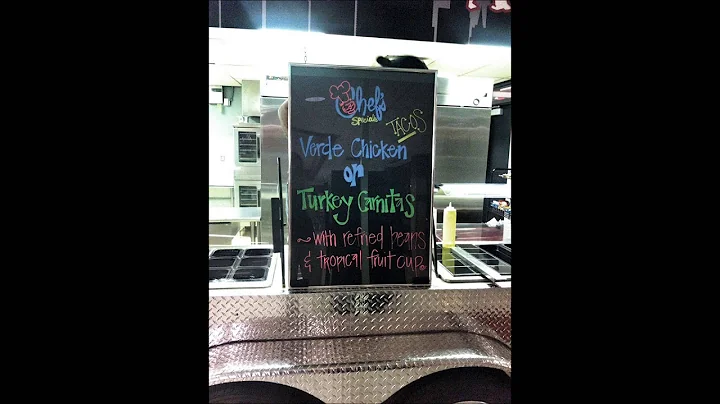 Chef's
Specials
TACOS
Verde Chicken
or
Turkey Carnitas
~with refried beans
& tropical fruit cup.